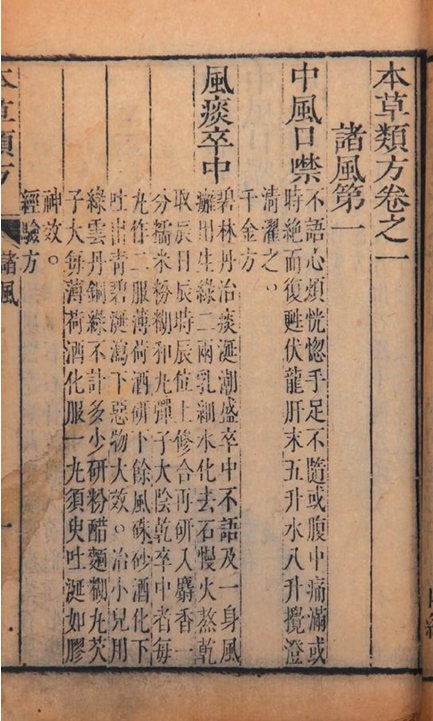 本草類方卷之一
諸風第一
中風口噤
不語心煩恍惚手足不隨或腹中痛滿或
時絶而復甦伏龍肝末五升水八升攪澄
清濯之。
千金方
風痰卒中
碧林丹治痰涎潮盛卒中不語及一身風
癱用生綠二兩乳細水化去石慢火熬乾
取辰日辰時辰位上修合再研入麝香一
分糯米粉糊和丸彈子大陰乾卒中者每
丸作二服薄荷酒研下餘風硃砂酒化下
吐出青碧涎瀉下惡物大效。治小兒用
綠雲丹銅綠不計多少研粉醋麵糊丸芡
子大每薄荷酒化服一丸須臾吐涎如膠
神效。
經驗方
本草類方
諸風
一